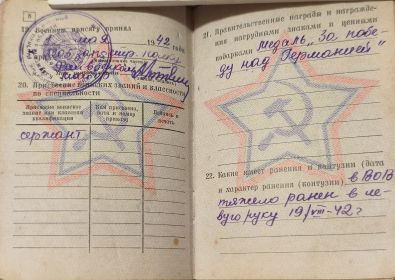 8
19. Военную присягу принял
мая 1942 года
20. Присвоение воинских званий и классность
по специальности
Присвоено воинское
звание или классная
квалификация
Кем присвоено,
дата и номер
приказа
Подпись и
печать
сержант
21. Правительственные награды и награжде-
ния нагрудными знаками и ценными
подарками медаль „За побе-
ду над Германией"
22. Какие имеет ранения и контузии (дата
и характер ранения (контузии) в ВОВ
тяжело ранен в ле-
вую руку 19/VIII-42 г